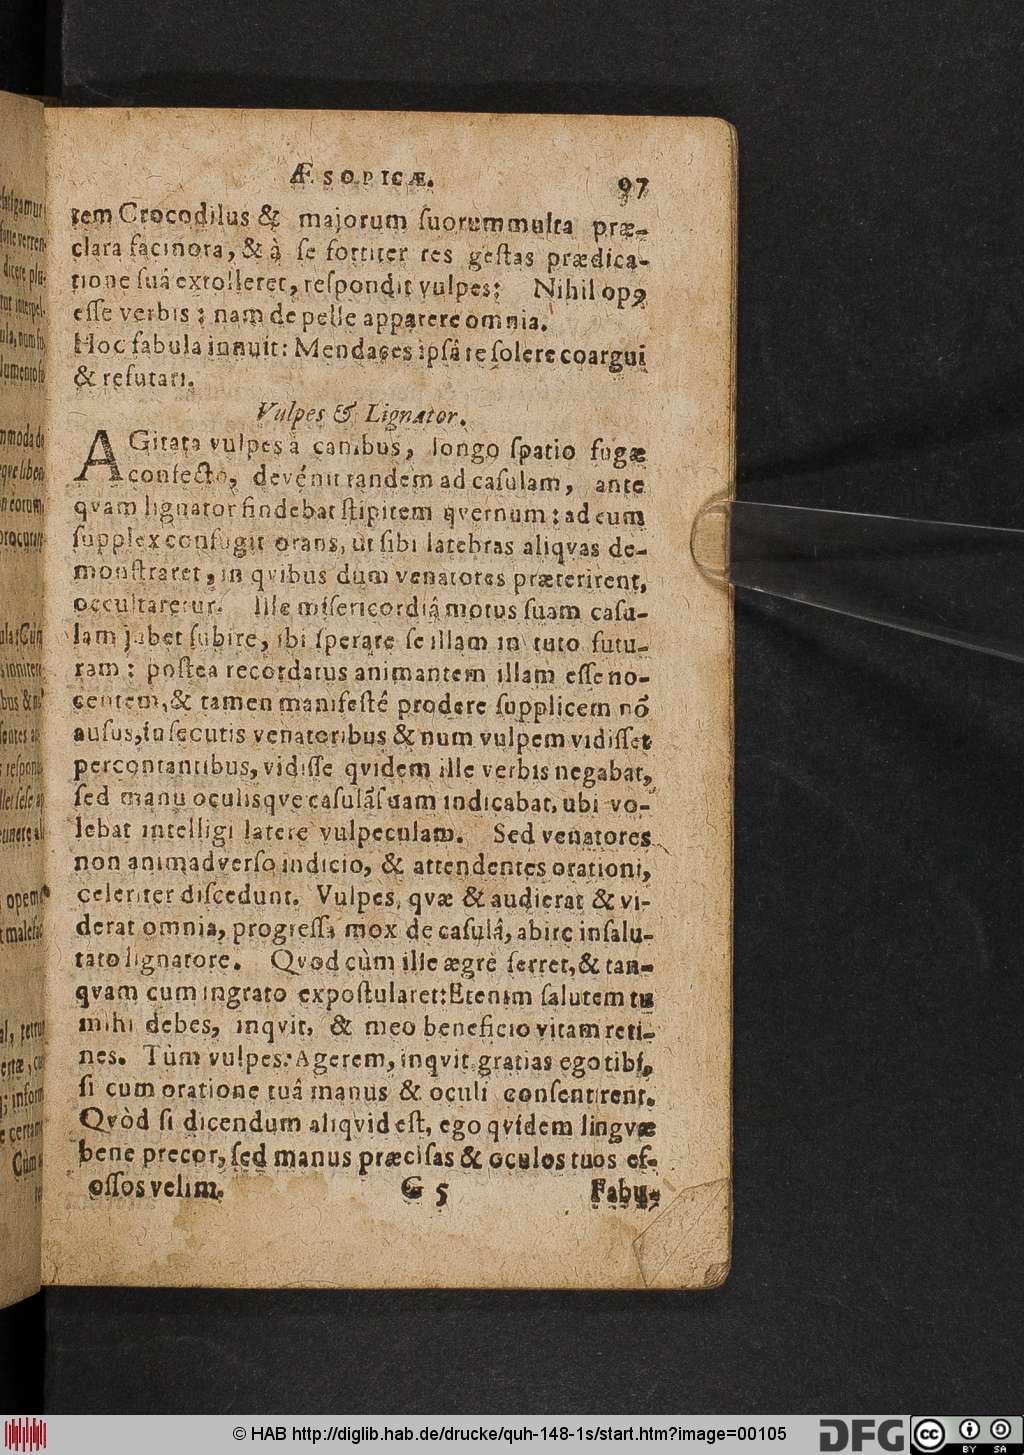 ÆSOPICÆ. 97
tem Crocodilus & majorum ſuorum multa præ-
clara facinora, & à ſe fortiter res geſtas prædica-
tione ſuâ extolleret, reſpondit vulpes: Nihil opꝰ
eſſe verbis; nam de pelle apparere omnia.
Hoc fabula innuit: Mendaces ipſâ re ſolere coargui
& refutari.
Vulpes & Lignator.
AGitata vulpes â canibus, longo ſpatio fugæ
confecto, devénit tandem ad caſulam, ante
qvam lignator findebat ſtipitem qvernum: ad eum
ſupplex confugit orans, ut ſibi latebras aliqvas de-
monſtraret, in qvibus dum venatores præterirent,
occultaretur. Ille miſericordiâ motus ſuam caſu-
lam jubet ſubire, ibi ſperare ſe illam in tuto futu-
ram: poſtea recordatus animantem illam eſſe no-
centem, & tamen manifeſtê prodere ſupplicem nō
auſus, inſecutis venatoribus & num vulpem vidiſſet
percontantibus, vidiſſe qvidem ille verbis negabat,
ſed manu oculisqve caſulā ſuam indicabat, ubi vo-
lebat intelligi latere vulpeculam. Sed venatores
non animadverſo indicio, & attendentes orationi,
celeriter diſcedunt. Vulpes, qvæ & audierat & vi-
derat omnia, progreſſa mox de caſulâ, abire inſalu-
tato lignatore. Qvod cùm ille ægrè ferret, & tan-
qvam cum ingrato expoſtularet: Etenim ſalutem tu
mihi debes, inqvit, & meo beneficio vitam reti-
nes. Tùm vulpes: Agerem, inqvit, gratias ego tibi,
ſi cum oratione tuâ manus & oculi conſentirent.
Qvòd ſi dicendum aliqvid eſt, ego qvidem lingvæ
bene precor, ſed manus præciſas & oculos tuos ef-
oſſos velim. G 5 Fabu-
© HAB http://diglib.hab.de/drucke/quh-148-1s/start.htm?image=00105
DFG
cc BY SA